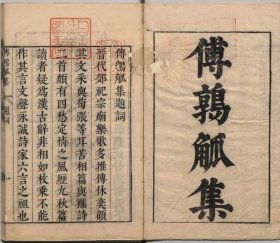 傅鶉觚集
傅鶉觚集題詞
晉代郊祀宗廟樂歌多推傅休奕顧
其文采與荀張等耳苦相篇與雜詩
二首頗有四愁定情之風歷九秋篇
讀者疑爲漢古辭非相如枚乘不能
作其言文聲永誠詩家六言之祖也
傅鶉觚集 題詞